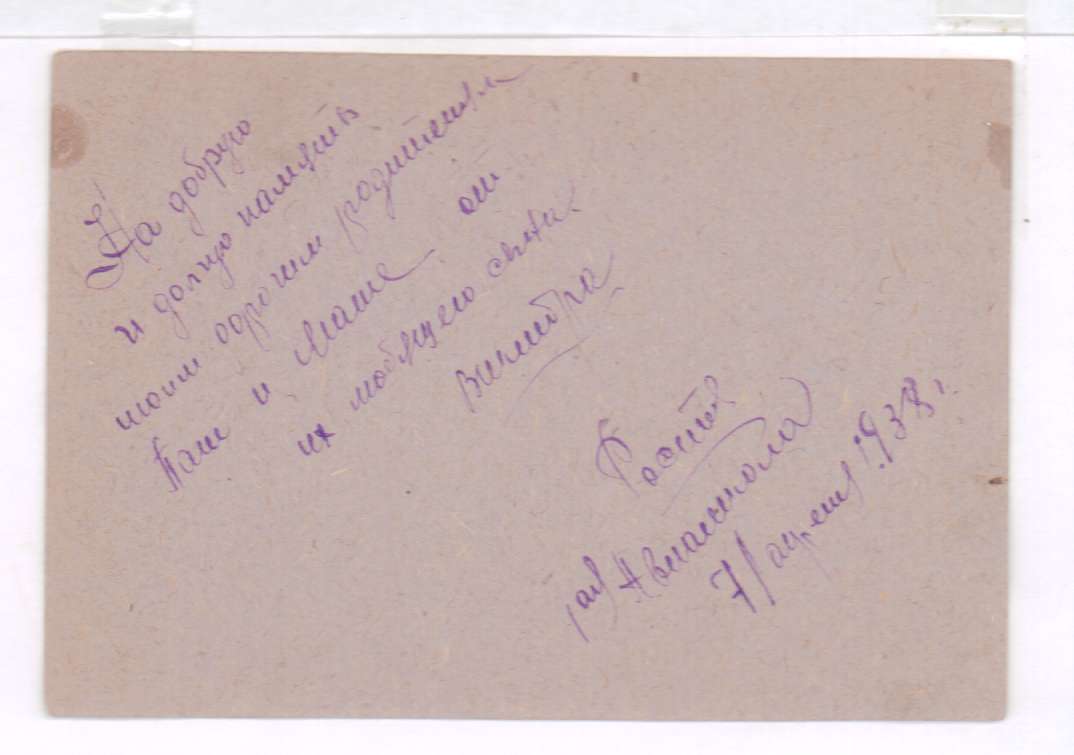 На добрую
и долгую память
моим дорогим родителям
Папе и Маме от
их любящего сына
Виктора
Ростов
Авиашкола
7/ апреля 1938 г.